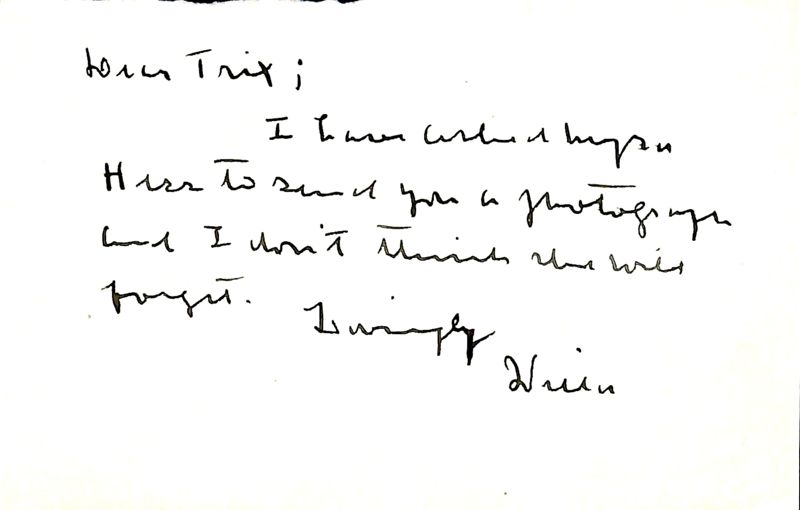 Dear Trix;
I have asked Myra
Hess to send you a photograph
and I don't think she will
forget.
Lovingly